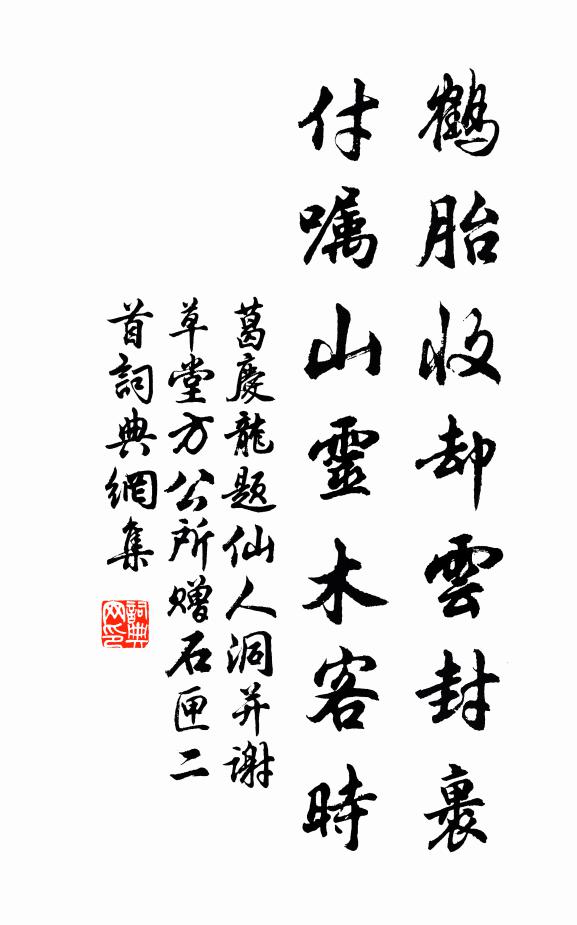 鶴胎收却雲封裹
付嘱山靈木客時
葛慶龍題仙人洞并謝
草堂方公所赠石匣二
首詞典網集
詞典网印